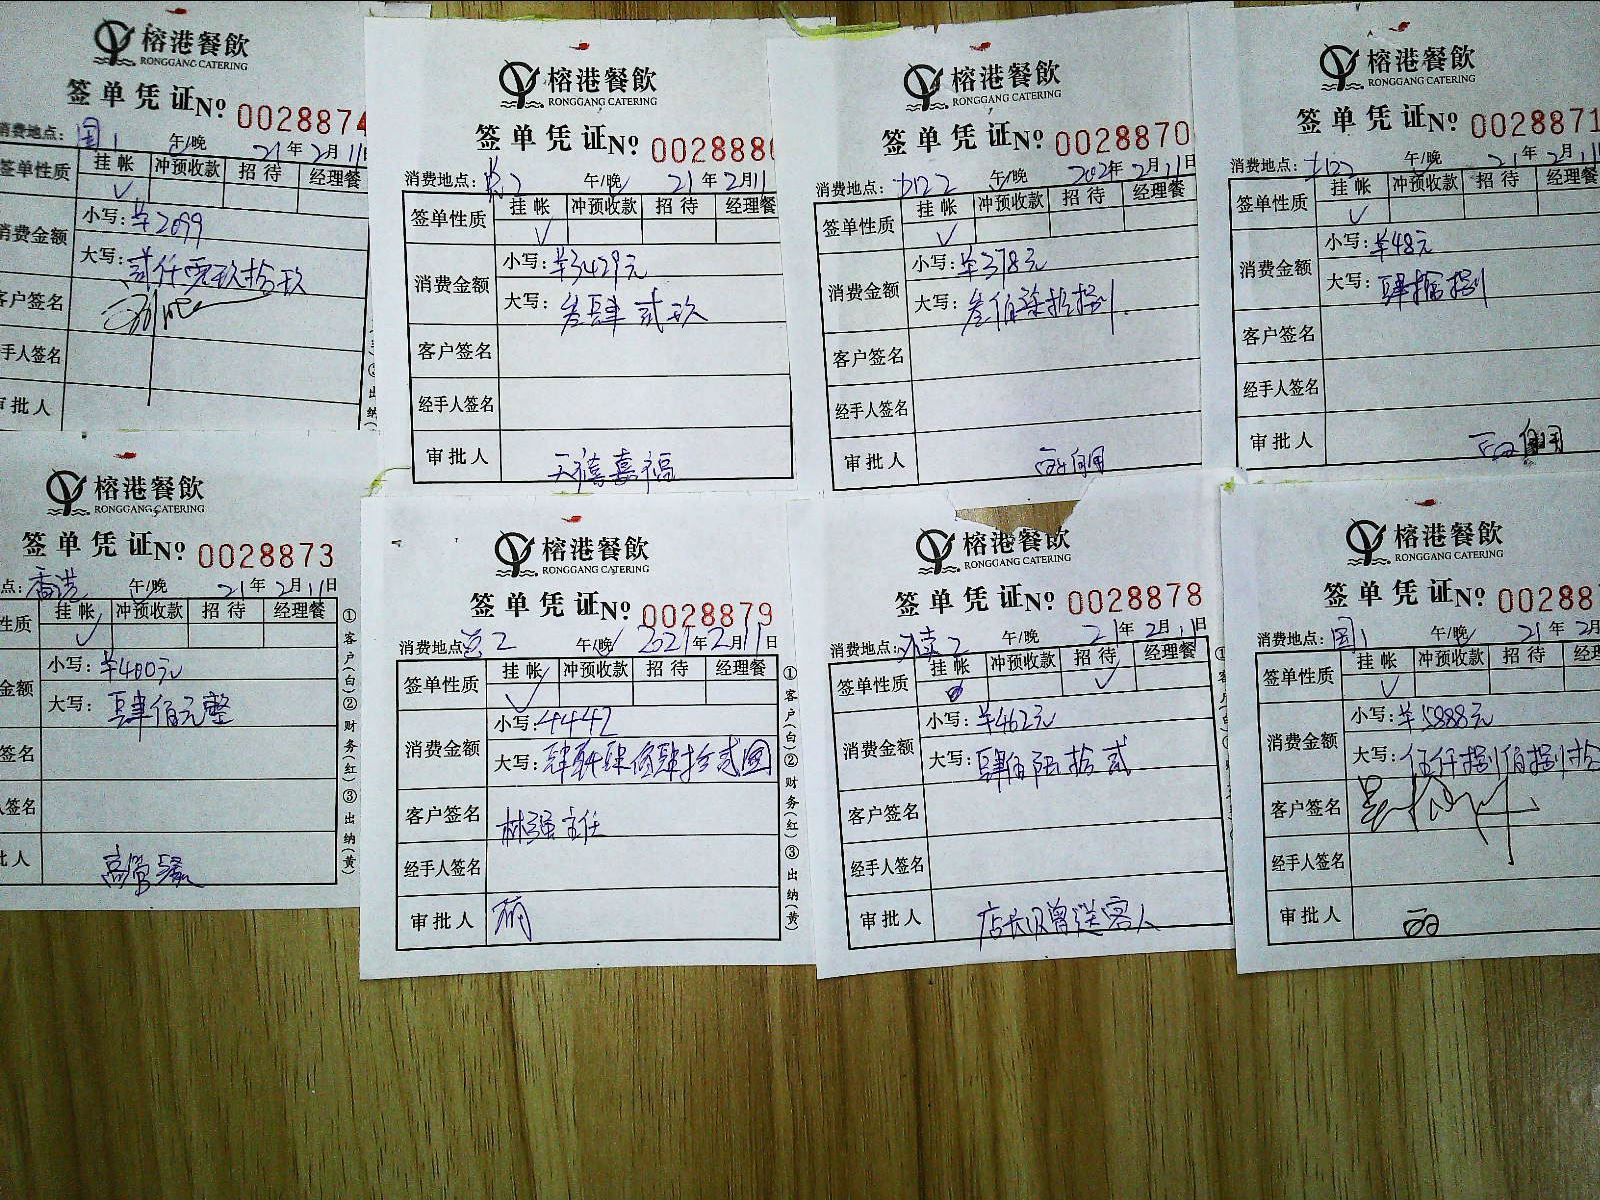 榕港餐飲
RONGGANG CATERING
签单凭证№ 0028874
消费地点: 国1 午/晚 21年2月11日
签单性质 挂帐 冲预收款 招待 经理餐
消费金额 小写: ¥2099
大写: 贰仟零玖拾玖
客户签名
手人签名
审批人
榕港餐飲
RONGGANG CATERING
签单凭证№ 002888
消费地点: 午/晚 21年2月11
签单性质 挂帐 冲预收款 招待 经理餐
消费金额 小写: ¥3429元
大写: 叁肆贰玖
客户签名
经手人签名
审批人 天禧嘉福
榕港餐飲
RONGGANG CATERING
签单凭证№ 0028870
消费地点: 午/晚 2021年2月11日
签单性质 挂帐 冲预收款 招待 经理餐
消费金额 小写: ¥378元
大写: 叁佰柒拾捌
客户签名
经手人签名
审批人
榕港餐飲
RONGGANG CATERING
签单凭证№ 0028871
消费地点: 午/晚 21年2月11
签单性质 挂帐 冲预收款 招待 经理餐
消费金额 小写: ¥48元
大写: 肆拾捌
客户签名
经手人签名
审批人
榕港餐飲
RONGGANG CATERING
签单凭证№ 0028873
点: 香港 午/晚 21年2月11日
性质 挂帐 冲预收款 招待 经理餐
金额 小写: ¥400元
大写: 肆佰元整
签名
人签名
批人
①客户(白)②财务(红)③出纳(黄)
榕港餐飲
RONGGANG CATERING
签单凭证№ 0028879
消费地点: 午/晚 2021年2月11日
签单性质 挂帐 冲预收款 招待 经理餐
消费金额 小写: 4442
大写: 肆仟肆佰肆拾贰圆
客户签名 林强主任
经手人签名
审批人
①客户(白)②财务(红)③出纳(黄)
榕港餐飲
RONGGANG CATERING
签单凭证№ 0028878
消费地点: 午/晚 21年2月11日
签单性质 挂帐 冲预收款 招待 经理餐
消费金额 小写: ¥462元
大写: 肆佰陆拾贰
客户签名
经手人签名
审批人 店长 赠送客人
榕港餐飲
RONGGANG CATERING
签单凭证№ 00288
消费地点: 国1 午/晚 21年2月
签单性质 挂帐 冲预收款 招待 经理
消费金额 小写: ¥5888元
大写: 伍仟捌佰捌拾
客户签名
经手人签名
审批人